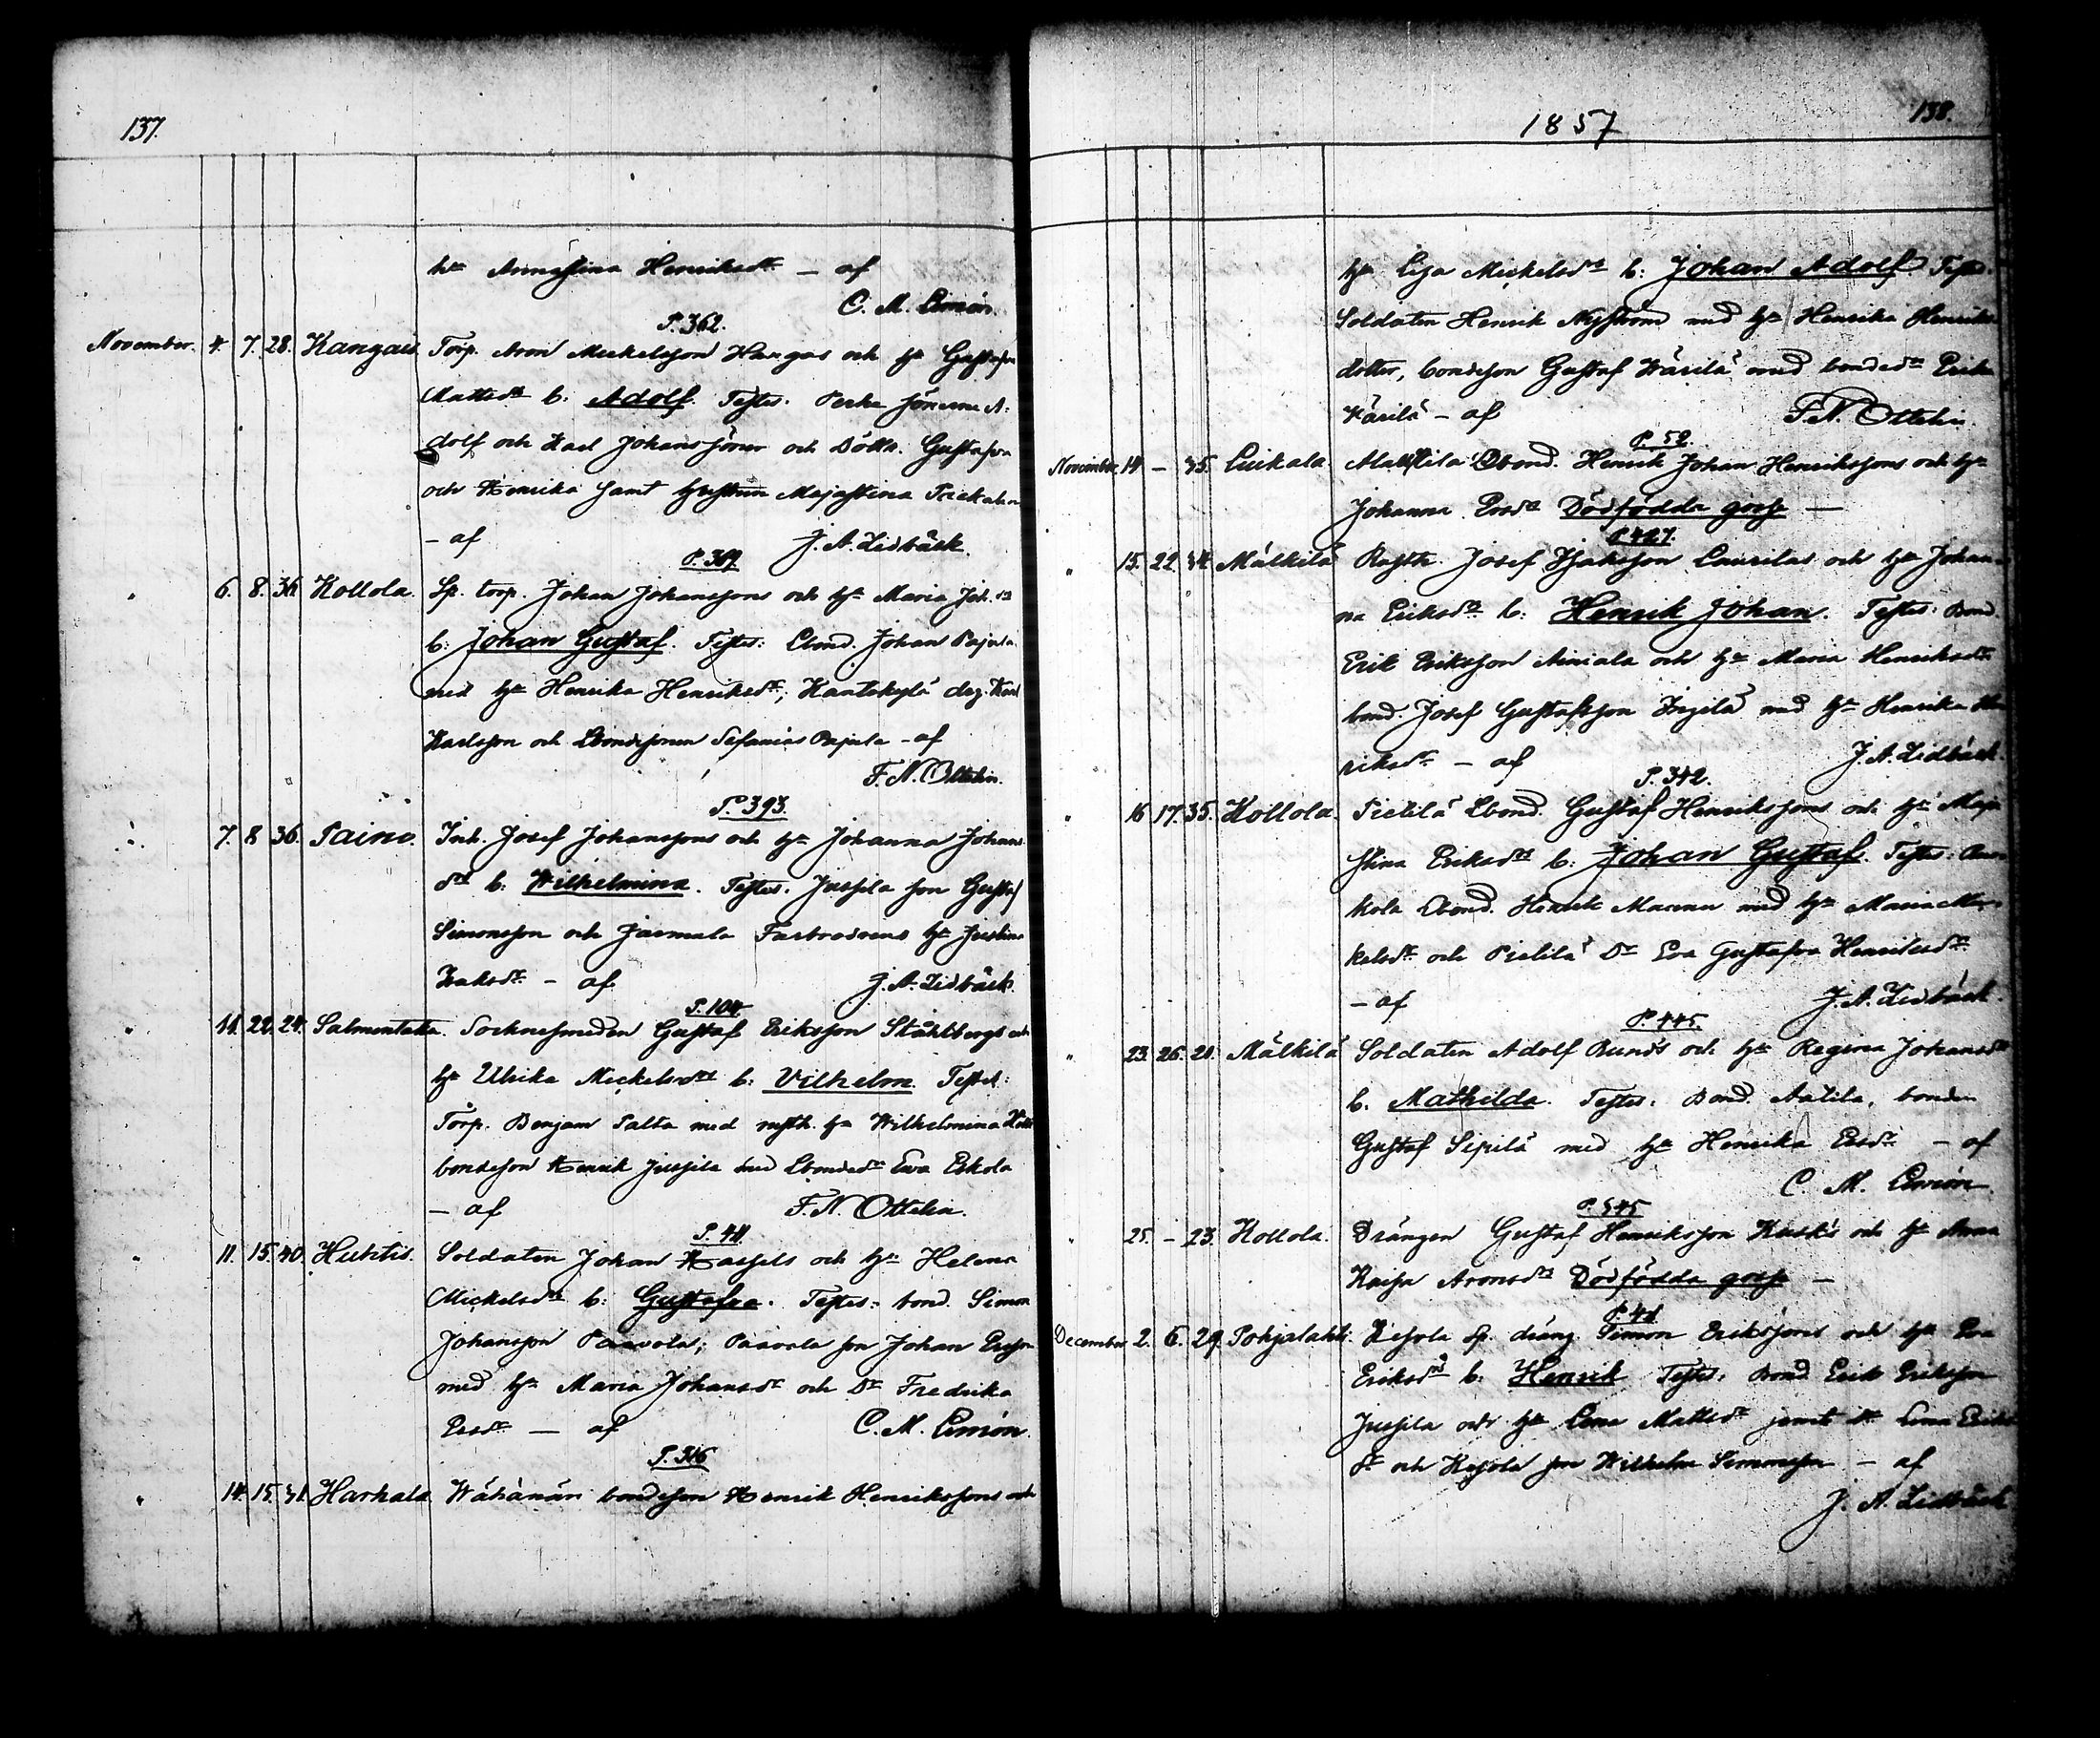 137.
hu Annastina Henriksdr — af
C. M. Limón.
P. 362.
November. 4. 7. 28. Kangais. Torp. Aron Mickelsson Kangas och hu Gustafva
Mattsdr b: Adolf. Testes: Perho sönerne A-
dolf och Karl Johans söner och Döttr. Gustafva
och Henrika samt hustrun Majastina
— af J. A. Lidbäck.
P. 369.
" 6. 8. 36. Kollola. Sp. torp. Johan Johanssons och hu Maria Joh. dr
b: Johan Gustaf. Testes: Lbond. Johan Pajula
med hu Henrika Henriksdr; Kantokylä drg. Karl
Karlsson och Lbondesonen Sefanias Pajula — af
F. N. Ottelin.
P. 393.
" 7. 8. 36. Taino. Inh. Josef Johanssons och hu Johanna Johans
dr b: Wilhelmina. Testes: Jussila son Gustaf
Simonsson och Jarmala Farbrodrens hu Justina
Isaksdr — af J. A. Lidbäck.
P. 104.
" 11. 22. 24. Salmentaka. Socknesmeden Gustaf Eriksson Ståhlbergs och
hu Ulrika Mickelsdr b: Vilhelm. Testes:
Torp. Benjam Palta med rusth. hu Wilhelmina
bondeson Henrik Jussila med Lbondedr Eva Eskola
— af F. N. Ottelin.
P. 411
" 11. 15. 40. Huhtis. Soldaten Johan Hassels och hu Helena
Mickelsdr b: Gustafva. Testes: bond. Simon
Johansson Paavola; Paavola son Johan Ersson
med hu Maria Johansdr och Dr Fredrika
Ersdr — af C. M. Limón.
P. 316
" 14. 15. 31. Harhala Wähänän bondeson Henrik Henrikssons och
1857
138.
hu Lisa Mickelsdr b: Johan Adolf. Testes:
Soldaten Henrik Nyström med hu Henrika Henriks-
dotter, bondeson Gustaf Wärilä med bondedr Erika
Wärilä — af F. N. Ottelin.
P. 52.
November 14. — 35. Luikala. Alattila Lbond. Henrik Johan Henrikssons och hu
Johanna Ersdr Dödfödda gosse —
P. 427.
" 15. 22. 34. Mälkilä Rusth. Josef Isaksson Laurilas och hu Johan-
na Eriksdr b: Henrik Johan. Testes: Bond.
Erik Eriksson Anniala och hu Maria Henriksdr
bond. Josef Gustafsson Yngilä med hu Henrika Hen
riksdr — af J. A. Lidbäck.
P. 342.
" 16. 17. 35. Kollola. Pietilä Lbond. Gustaf Henrikssons och hu Maja
Stina Eriksdr b: Johan Gustaf. Testes:
kola Lbond. Henrik Mannu med hu Maria Mic-
kelsdr och Pietilä Dr Eva Gustafva Henriksdr
— af J. A. Lidbäck.
P. 445.
" 23. 26. 21. Mälkilä Soldaten Adolf Runds och hu Regina Johansdr
b. Mathilda. Testes: Bond. Aatila, bonden
Gustaf Sipilä med hu Henrika Ersdr — af
C. M. Limón.
P. 545
" 25. — 23. Kollola. Drängen Gustaf Henriksson Kuskis och hu Anna
Kaisa Aronsdr Dödfödda gosse —
P. 41
December 2. 6. 29. Pohjalahti. Kejola Sp. dräng Simon Erikssons och hu Eva
Eriksdr b. Henrik Testes: Bond Erik Eriksson
Jussila och hu Lena Mattsdr jemte dr Lena Eriks
dr och Kejola son Wilhelm Simonsson — af
J. A. Lidbäck